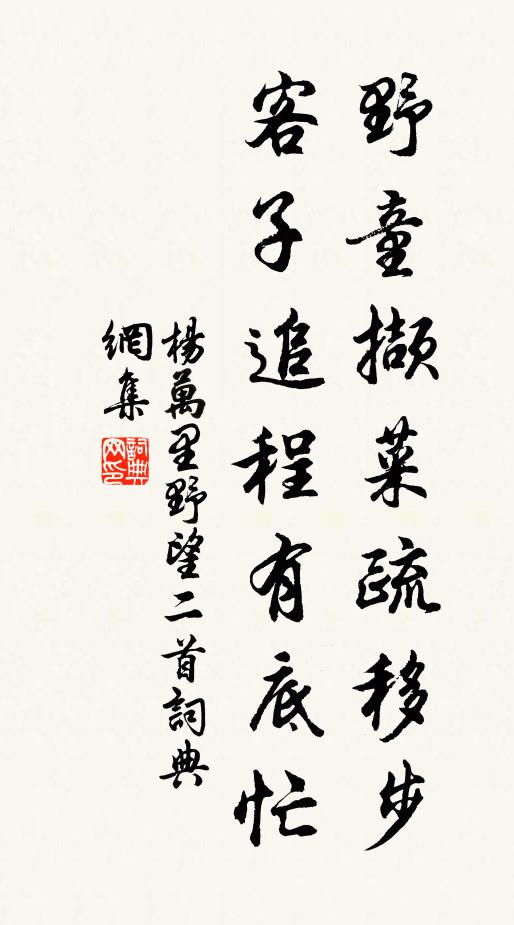 野童擷菜疏移步
客子追程有底忙
楊萬里野望二首詞典
網集
詞典網印